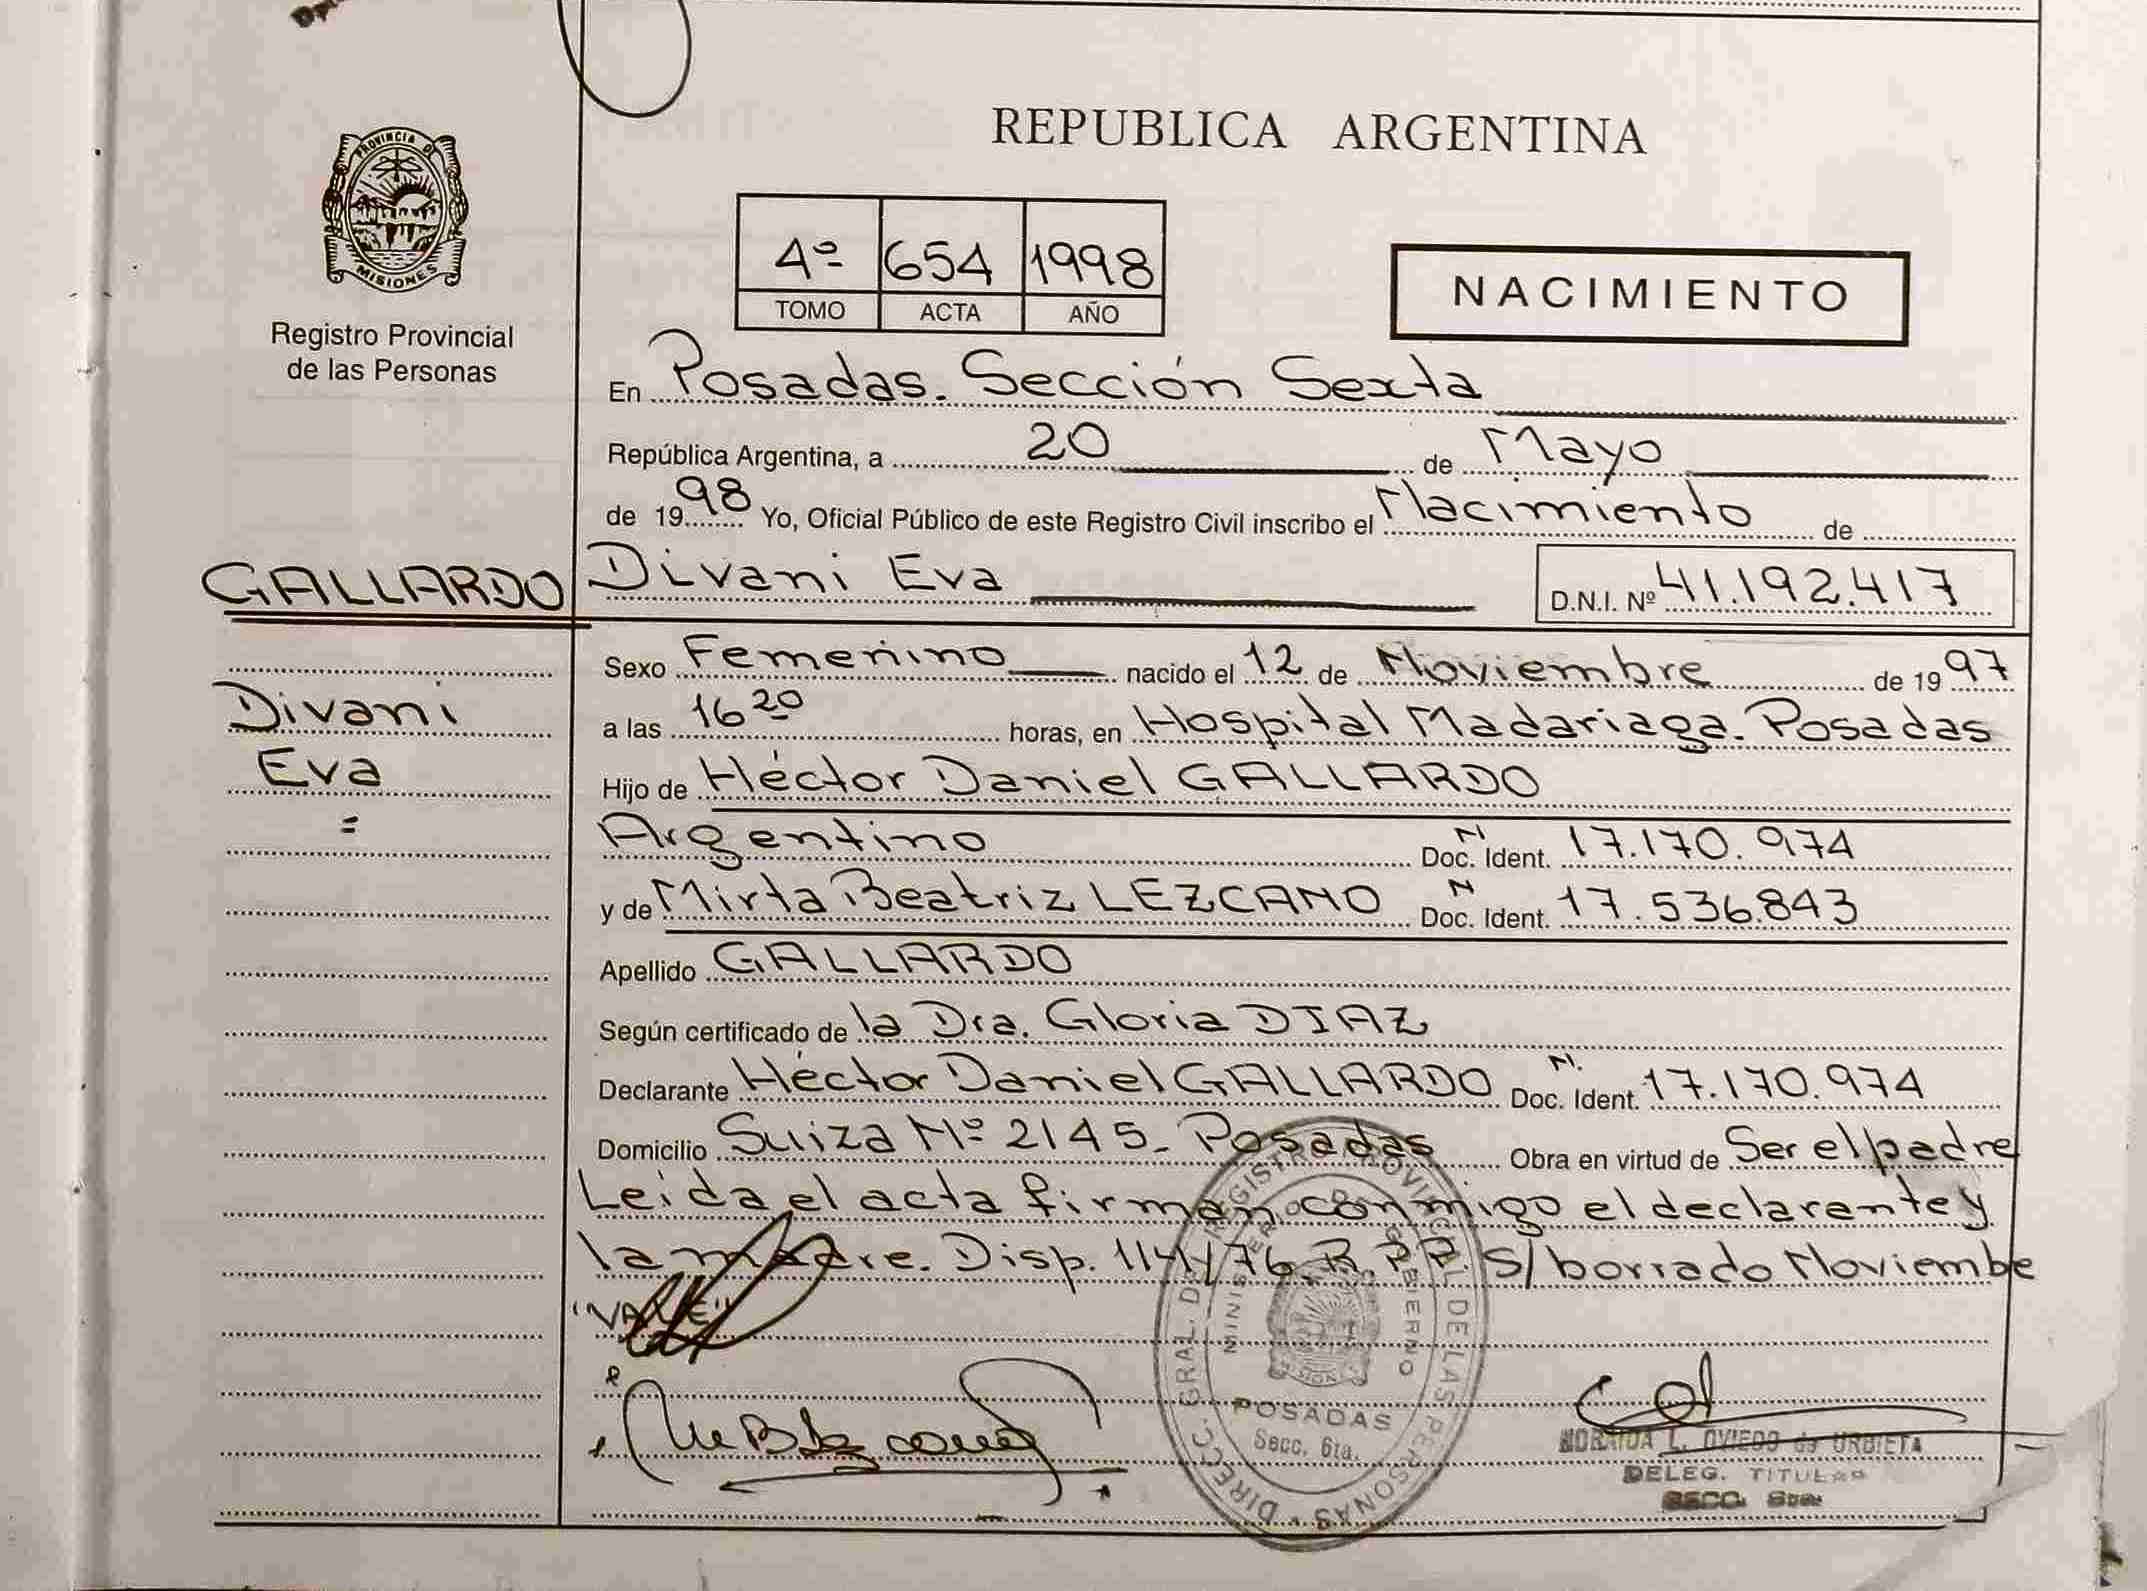 PROVINCIA DE
MISIONES
Registro Provincial
de las Personas
REPUBLICA ARGENTINA
4º 654 1998
TOMO ACTA AÑO
NACIMIENTO
En Posadas. Sección Sexta
República Argentina, a 20 de Mayo
de 1998 Yo, Oficial Público de este Registro Civil inscribo el Nacimiento de
GALLARDO Divani Eva D.N.I. Nº 41.192.417
Sexo Femenino nacido el 12 de Noviembre de 1997
Divani
a las 16 20 horas, en Hospital Madariaga. Posadas
Eva
Hijo de Héctor Daniel GALLARDO
=
Argentino Doc. Ident. N 17.170.974
y de Mirta Beatriz LEZCANO Doc. Ident. N 17.536.843
Apellido GALLARDO
Según certificado de la Dra. Gloria DIAZ
Declarante Héctor Daniel GALLARDO Doc. Ident. N. 17.170.974
Domicilio Suiza Nº 2145. Posadas Obra en virtud de Ser el padre
Leída el acta firman conmigo el declarante y
la madre. Disp. 114/76.R.P.P. S/borrado Noviembe
"VALE"
DIRECC. GRAL. DEL REGISTRO PROVINCIAL DE LAS PERSONAS
MINISTERIO DE GOBIERNO
POSADAS
Secc. 6ta.
L. OVIEDO de URBIETA
DELEG. TITULAR
SECC. 6ta.